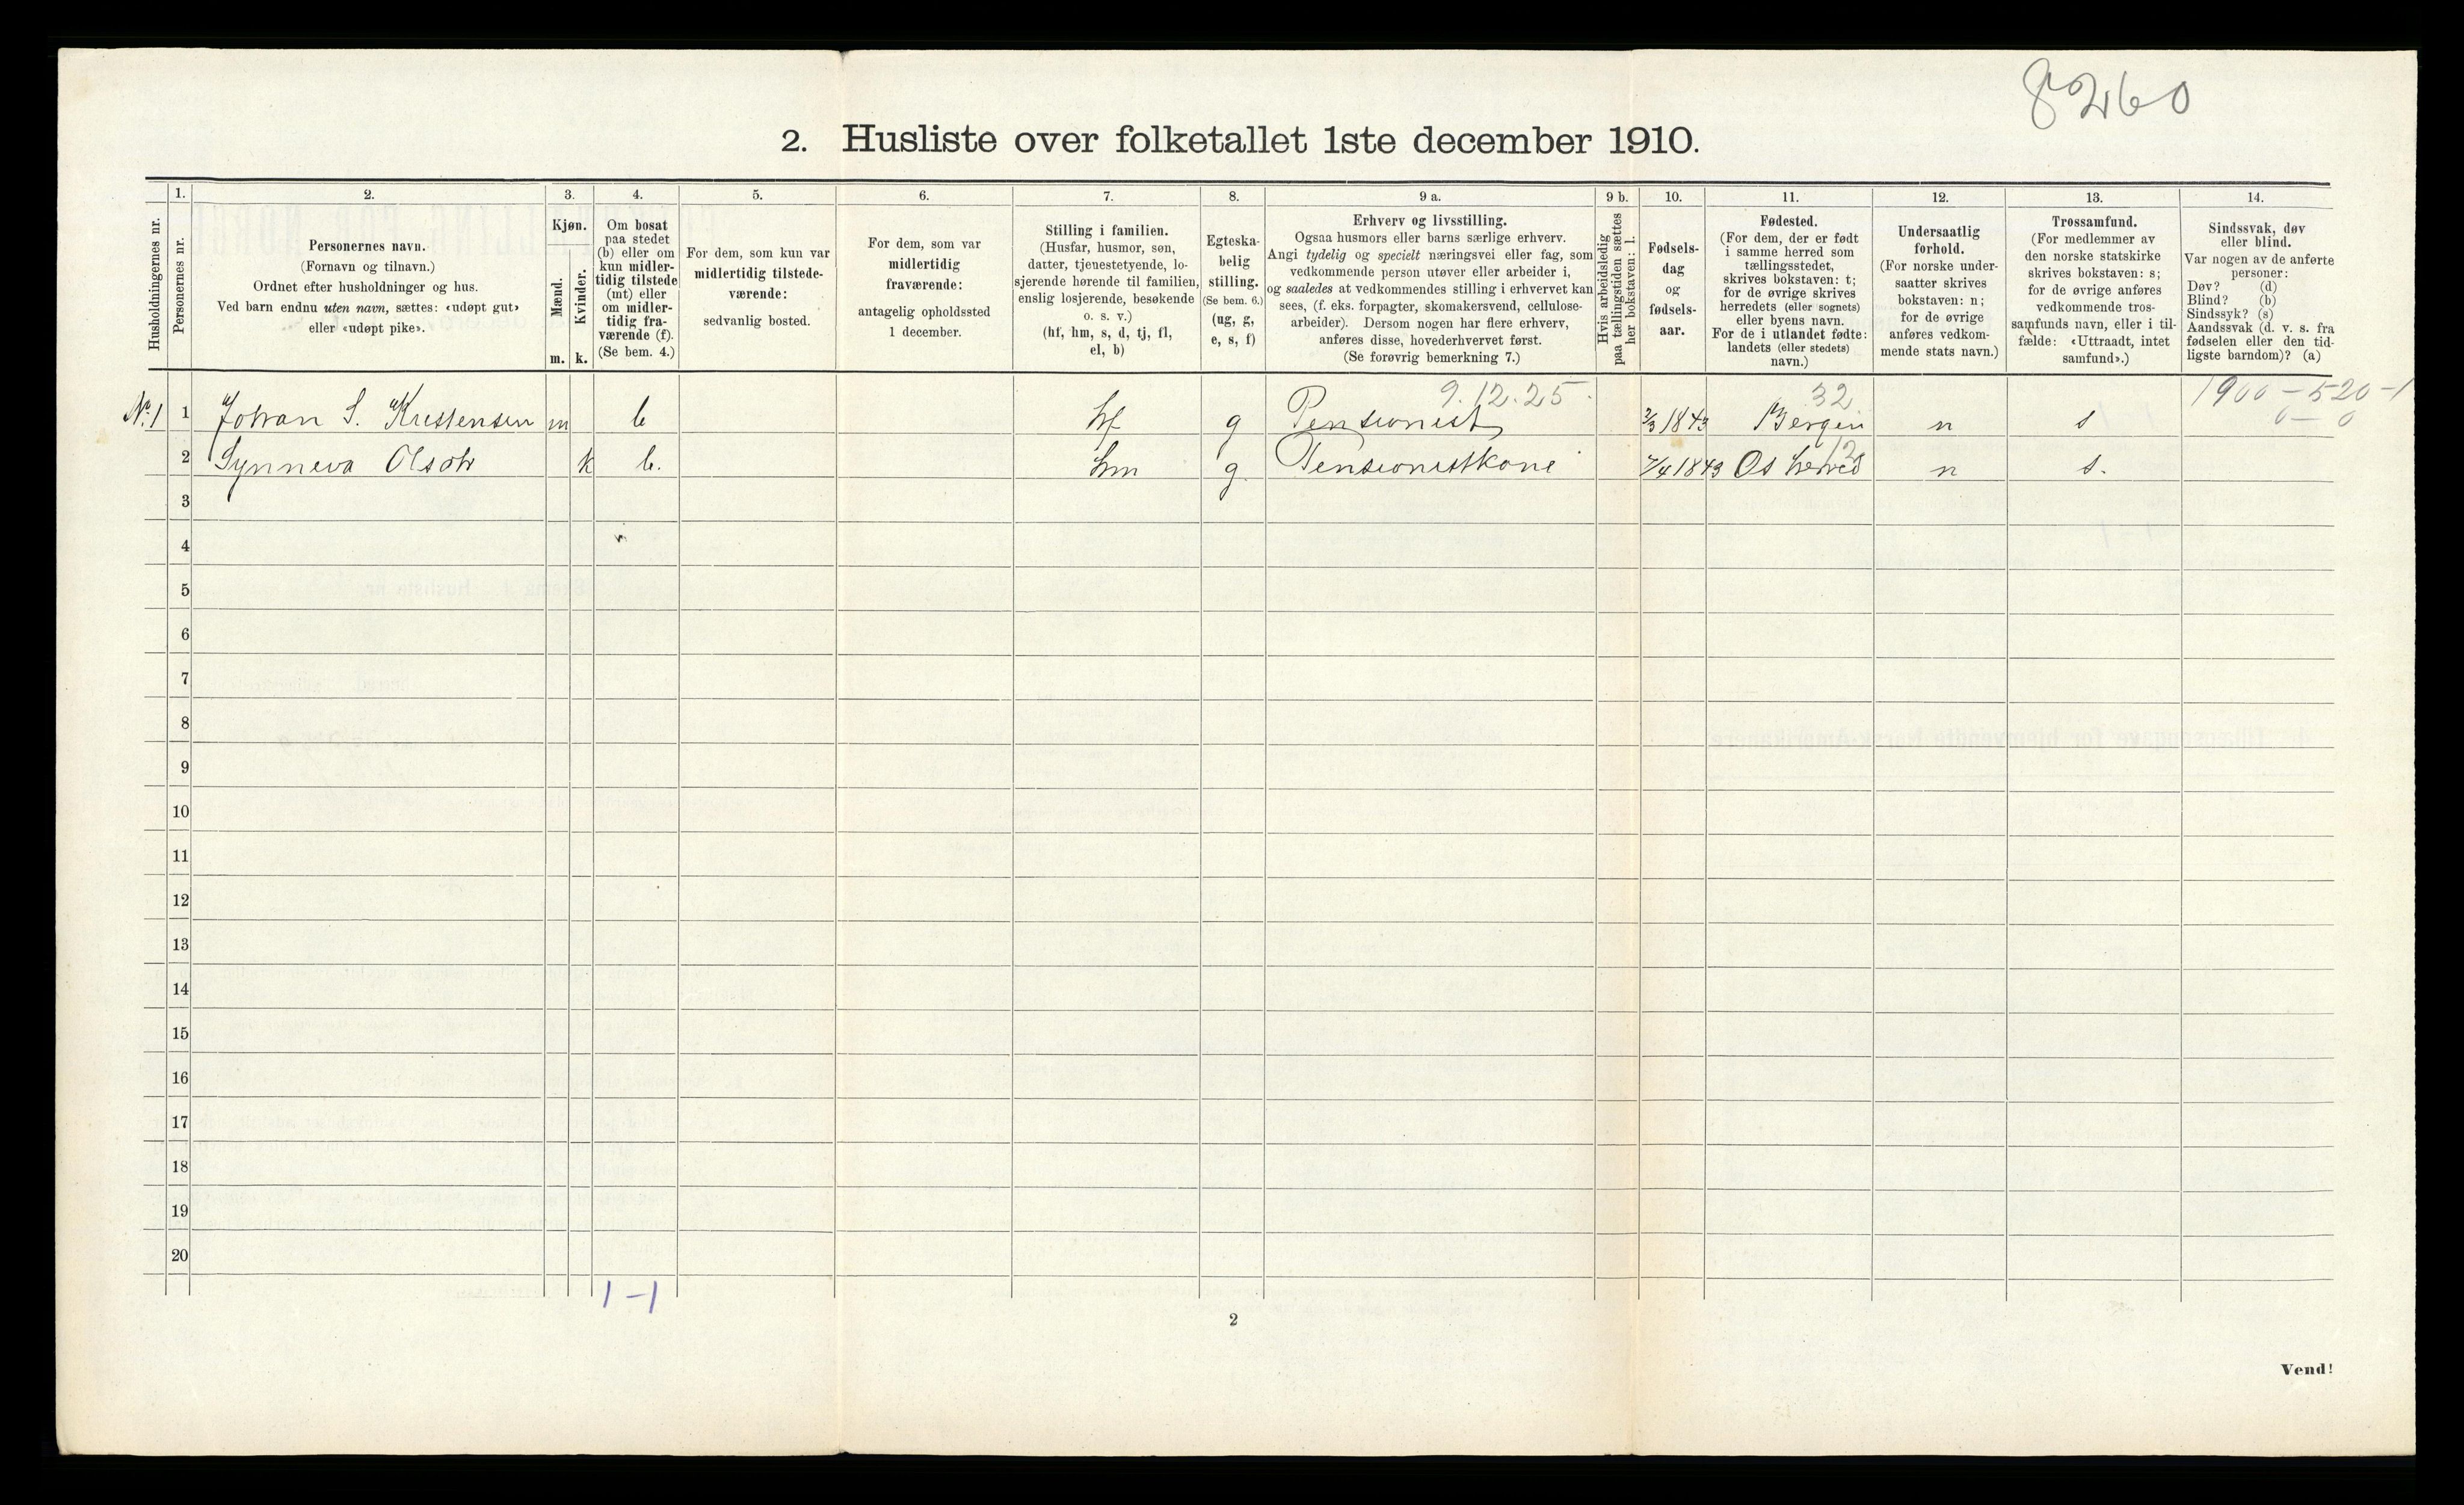 8260
2. Husliste over folketallet 1ste december 1910.
Husholdningernes nr.
1.
Personernes nr.
2.
Personernes navn.
(Fornavn og tilnavn.)
Ordnet efter husholdninger og hus.
Ved barn endnu uten navn, sættes: «udøpt gut»
eller «udøpt pike».
3.
Kjøn.
Mænd.
m.
Kvinder.
k.
4.
Om bosat
paa stedet
(b) eller om
kun midler-
tidig tilstede
(mt) eller
om midler-
tidig fra-
værende (f).
(Se bem. 4.)
5.
For dem, som kun var
midlertidig tilstede-
værende:
sedvanlig bosted.
6.
For dem, som var
midlertidig
fraværende:
antagelig opholdssted
1 december.
7.
Stilling i familien.
(Husfar, husmor, søn,
datter, tjenestetyende, lo-
sjerende hørende til familien,
enslig losjerende, besøkende
o. s. v.)
(hf, hm, s, d, tj, fl,
el, b)
8.
Egteska-
belig
stilling.
(Se bem. 6.)
(ug, g,
e, s, f)
9 a.
Erhverv og livsstilling.
Ogsaa husmors eller barns særlige erhverv.
Angi tydelig og specielt næringsvei eller fag, som
vedkommende person utøver eller arbeider i,
og saaledes at vedkommendes stilling i erhvervet kan
sees, (f. eks. forpagter, skomakersvend, cellulose-
arbeider). Dersom nogen har flere erhverv,
anføres disse, hovederhvervet først.
(Se forøvrig bemerkning 7.)
9 b.
Hvis arbeidsledig
paa tællingstiden sættes
her bokstaven: l.
10.
Fødsels-
dag
og
fødsels-
aar.
11.
Fødested.
(For dem, der er født
i samme herred som
tællingsstedet,
skrives bokstaven: t;
for de øvrige skrives
herredets (eller sognets)
eller byens navn.
For de i utlandet fødte:
landets (eller stedets)
navn.)
12.
Undersaatlig
forhold.
(For norske under-
saatter skrives
bokstaven: n;
for de øvrige
anføres vedkom-
mende stats navn.)
13.
Trossamfund.
(For medlemmer av
den norske statskirke
skrives bokstaven: s;
for de øvrige anføres
vedkommende tros-
samfunds navn, eller i til-
fælde: «Uttraadt, intet
samfund».)
14.
Sindssvak, døv
eller blind.
Var nogen av de anførte
personer:
Døv? (d)
Blind? (b)
Sindssyk? (s)
Aandssvak (d. v. s. fra
fødselen eller den tid-
ligste barndom)? (a)
9.12.25 32 1900 – 520 – 1
0 – 0
No. 1 1 Johan S. Kristensen m b hf g Pensionist 2/3 1843 Bergen n s
2 Synneva Olsdtr k b. hm g Pensionistkone 7/4 1843 Os herred n s.
3
4
5
6
7
8
9
10
11
12
13
14
15
16
17
18
19
20
1 – 1
2
Vend!